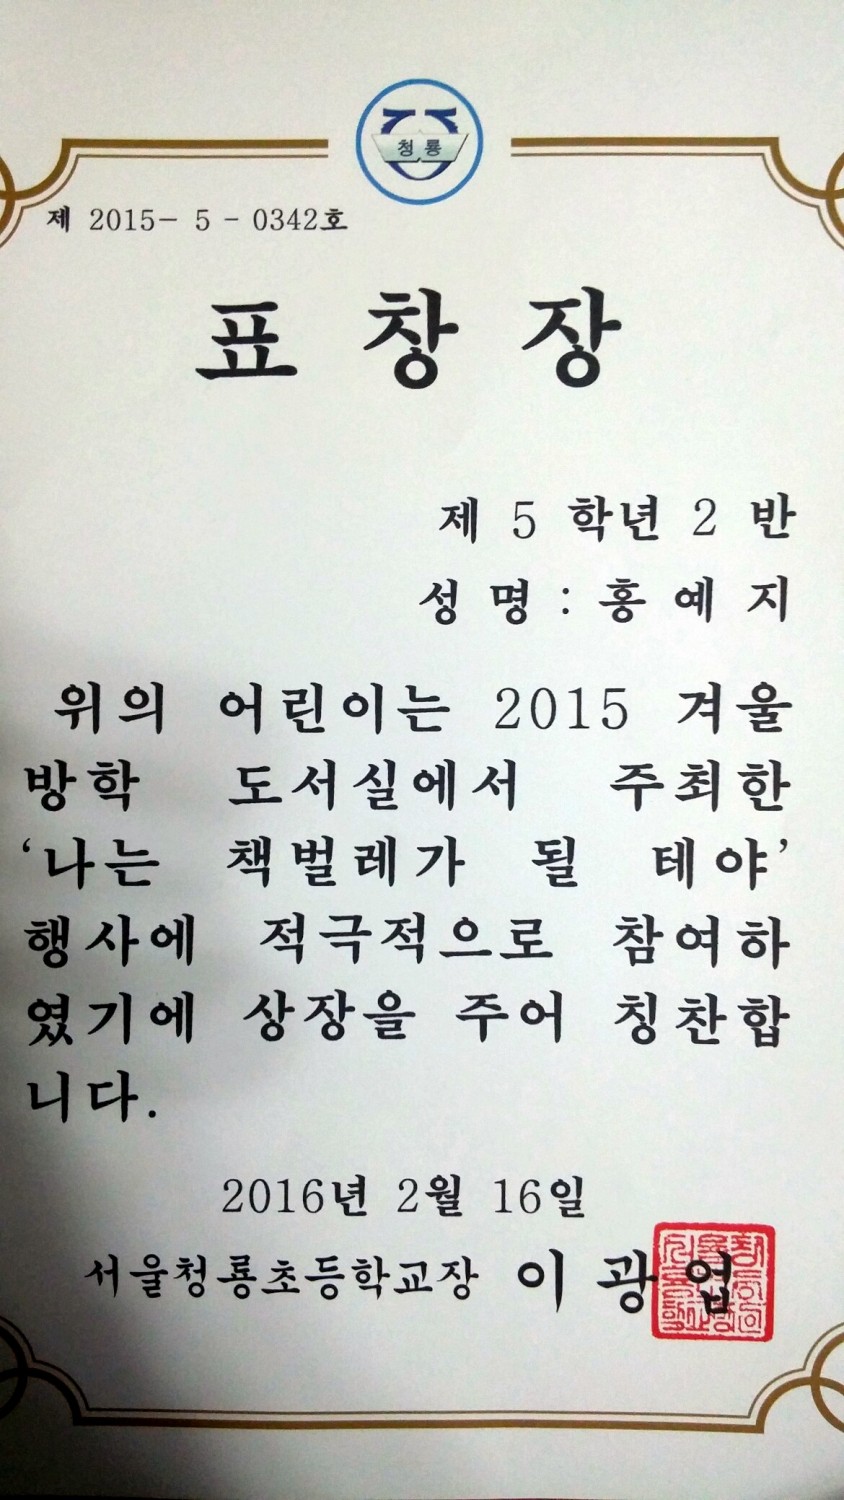 청룡
제 2015- 5 - 0342호
표 창 장
제 5 학년 2 반
성 명 : 홍 예 지
위의 어린이는 2015 겨울
방학 도서실에서 주최한
‘나는 책벌레가 될 테야’
행사에 적극적으로 참여하
였기에 상장을 주어 칭찬합
니다.
2016년 2월 16일
서울청룡초등학교장 이 광 업